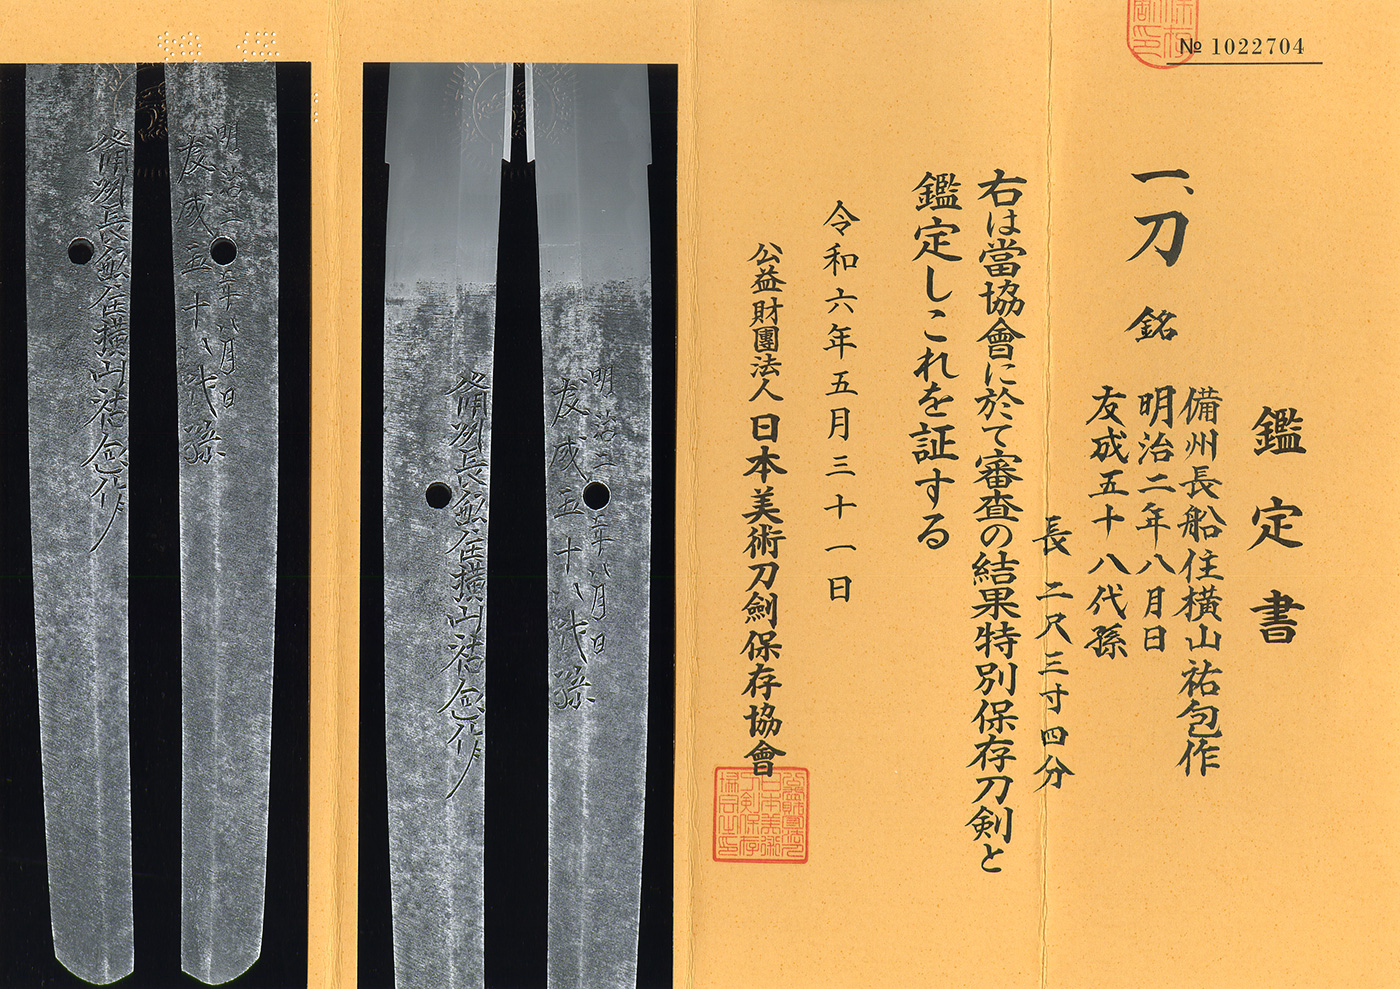 № 1022704
鑑定書
一、刀 銘
備州長船住横山祐包作
明治二年八月日
友成五十八代孫
長 二尺三寸四分
右は當協會に於て審査の結果特別保存刀剣と
鑑定しこれを証する
令和六年五月三十一日
公益財團法人 日本美術刀劍保存協會
明治二年八月日
友成五十八代孫
備州長船住横山祐包作
明治二年八月日
友成五十八代孫
備州長船住横山祐包作